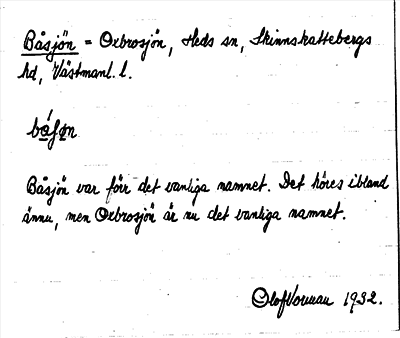 Båsjön = Oxbrosjön, Heds sn, Skinnskattebergs
hd, Västmanl. l.
Båsjön var förr det vanliga namnet. Det höres ibland
ännu, men Oxbrosjön är nu det vanliga namnet.
Olof 1932.